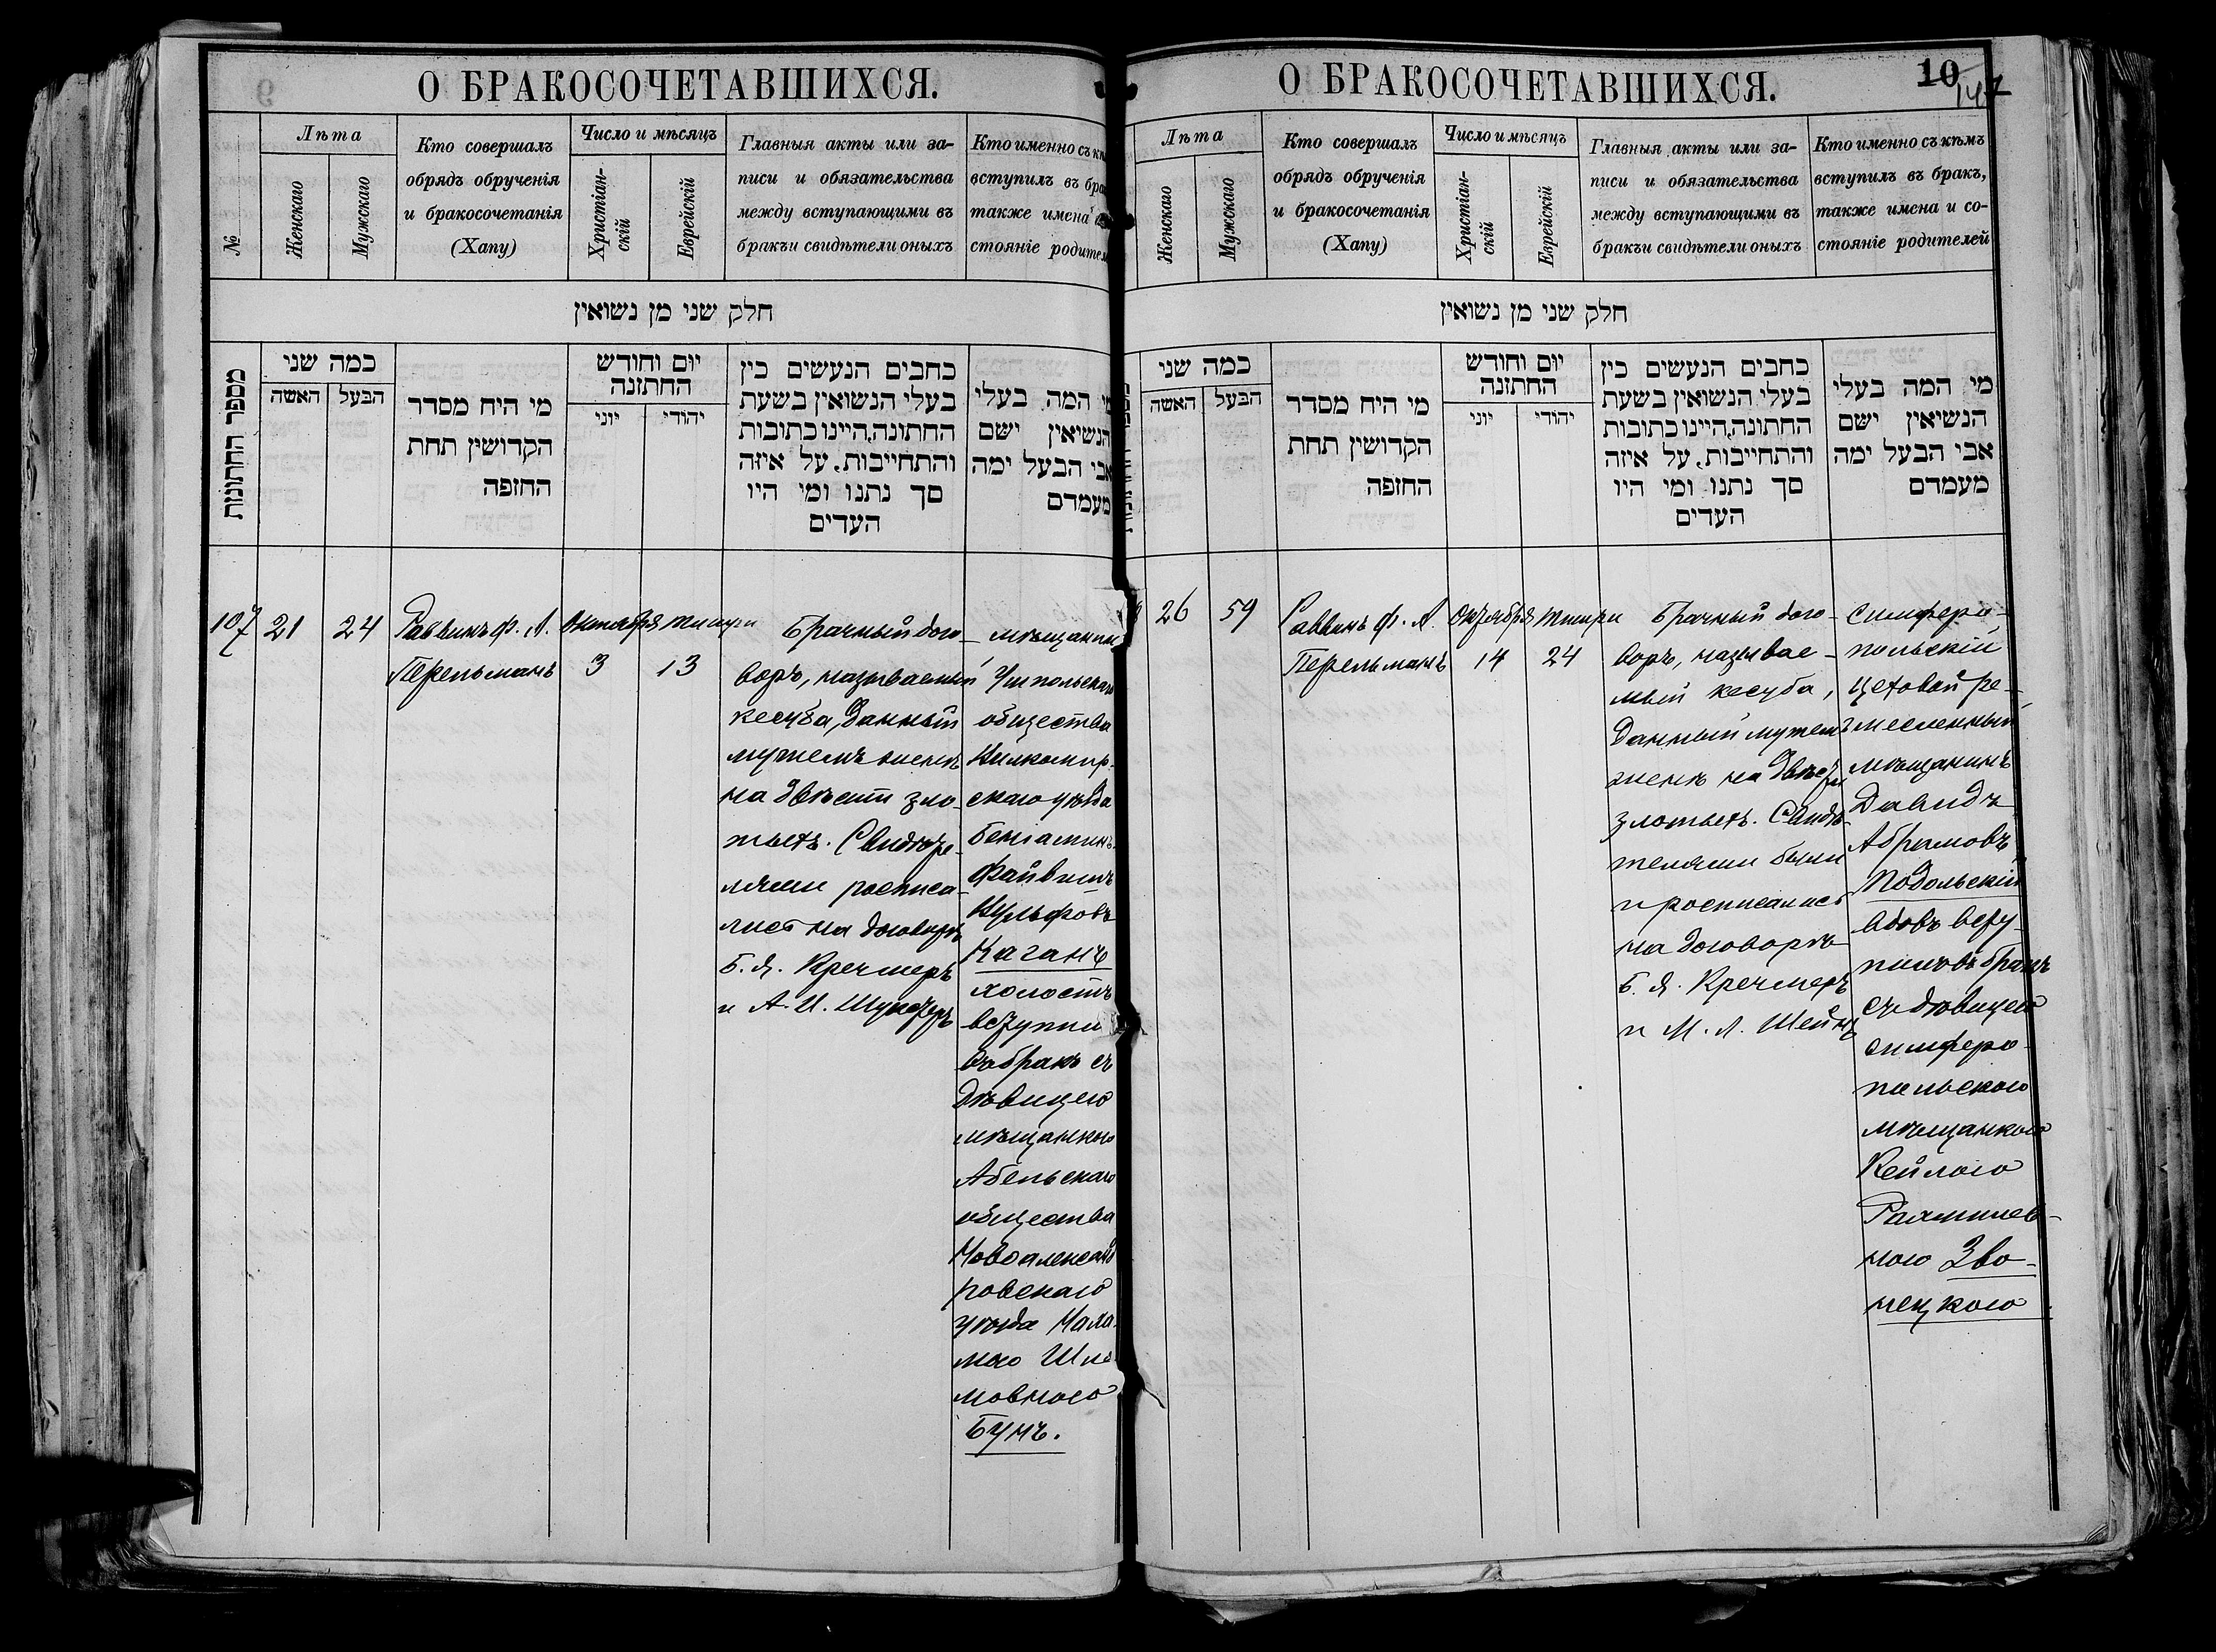 О БРАКОСОЧЕТАВШИХСЯ.
№
Лѣта
Женскаго
Мужскаго
Кто совершалъ
обрядъ обрученія
и бракосочетанія
(Хапу)
Число и мѣсяцъ
Христіан-
скій
Еврейскій
Главныя акты или за-
писи и обязательства
между вступающими въ
бракъи свидѣтели оныхъ
Кто именно съ
вступилъ въ
также имена
стояніе
חלק שני מן נשואין
מספר החתונות
כמה שני
האשה
הבעל
מי היח מסדר
הקדושין תחת
החזפה
יום וחודש
החתזנה
יוני
יהודי
כחבים הנעשים כין
בעלי הנשואין בשעת
החתונה,היינו כתובות
והתחייבות, על איזה
סך נתנו ומי היו
העדים
מי המה בעלי
הנשיאין ישם
אבי הבעל ימה
מעמדם
107
21
24
Раввинъ Ф. Л.
Перельманъ
Октября
3
Тишри
13
Брачный дого-
воръ, называемый
кесуба, данный
мужемъ женѣ
на двѣсти зло-
тыхъ. Свидѣте-
лями росписа-
лись на договорѣ
Б. Я. Кречмеръ
и А. И.
мѣщанинъ
Ушпольскаго
общества
Вилкомир-
скаго уѣзда
Беніаминъ-
Файвишъ
Вульфовъ
Каганъ
холостъ
вступи
въ бракъ съ
дѣвицею
мѣщанкою
Абельскаго
общества
Новоалександ
ровскаго
уѣзда Маха
лею Шле
мовною
Бунъ.
О БРАКОСОЧЕТАВШИХСЯ.
10
147
Лѣта
Женскаго
Мужскаго
Кто совершалъ
обрядъ обрученія
и бракосочетанія
(Хапу)
Число и мѣсяцъ
Христіан-
скій
Еврейскій
Главныя акты или за-
писи и обязательства
между вступающими въ
бракъи свидѣтели оныхъ
Кто именно съ кѣмъ
вступилъ въ бракъ,
также имена и со-
стояніе родителей
חלק שני מן נשואין
כמה שני
האשה
הבעל
מי היח מסדר
הקדושין תחת
החזפה
יום וחודש
החתזנה
יוני
יהודי
כחבים הנעשים כין
בעלי הנשואין בשעת
החתונה,היינו כתובות
והתחייבות, על איזה
סך נתנו ומי היו
העדים
מי המה בעלי
הנשיאין ישם
אבי הבעל ימה
מעמדם
26
59
Раввинъ Ф. Л.
Перельманъ
Октября
14
Тишри
24
Брачный дого-
воръ, называе-
мый кесуба,
данный мужемъ
женѣ на двѣсти
злотыхъ. Свидѣ-
телями были
и росписались
на договорѣ
Б. Я. Кречмеръ
и М. Л. Шейнъ
Симферо-
польскій
цеховой ре-
месленный
мѣщанинъ
Давидъ
Абрамовъ
Подольскій
вдовъ всту-
пилъ въ бракъ
съ дѣвицею
симферо-
польскою
мѣщанкою
Кейлою
Рахмилев-
ною Зво-
нецкою